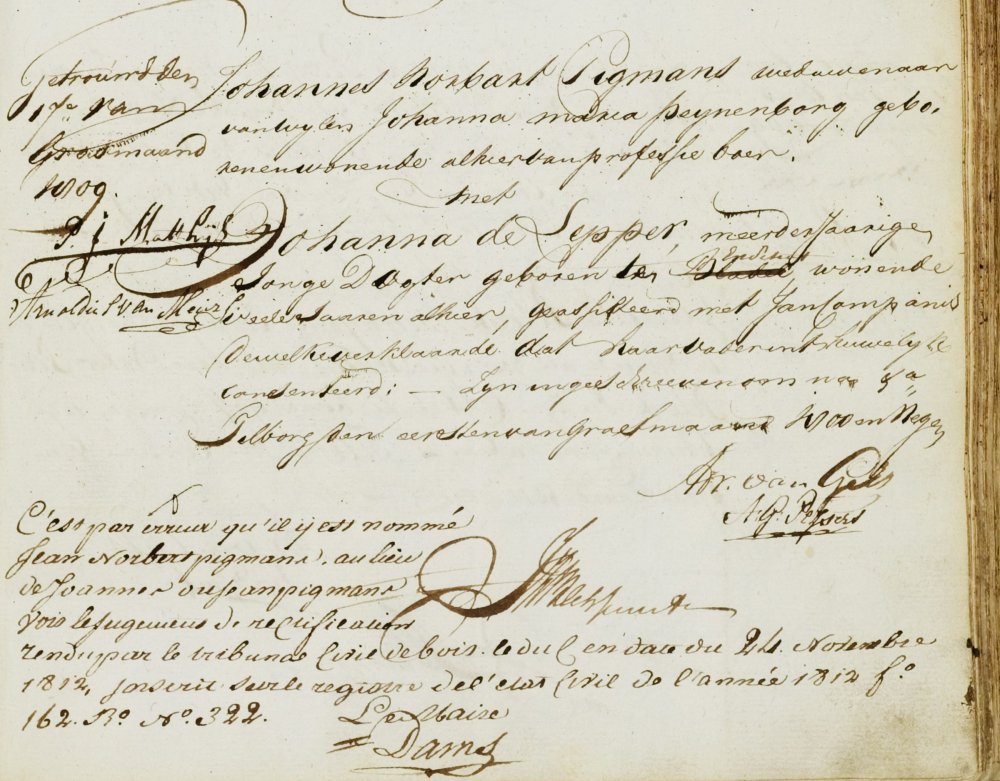 getrouwd den
17e van
Grasmaand
1809.
P. J. Matthijs
Arnoldus van
Johannes Norbart Pigmans weduwenaar
van wylen Johanna maria Peynenborg gebo-
ren en wonende alhier van professie boer.
met
Johanna de Lepper, meerderjaarige
Jonge Dogter geboren te wonende
alhier, geassisteerd met Jan Companis
dewelke verklaarde, dat haar vader in t huwelyk
consenteerd: — Zyn ingeschreeven om na
Tilborg den eersten van Grasmaand 1800 en Negen
Adr. van Gils
C'est par erreur qu'il y est nommé
Jean Norbert pigmans. au lieu
de Joannes ou Jean pigmans
Vois le Jugement de rectification
rendu par le tribunal Civil de bois-le-duc en date du 24. Novembre
1812, Inscrit sur le registre de l'état Civil de l'année 1812 fo.
162. Ro. No. 322.
Le Maire
Dams